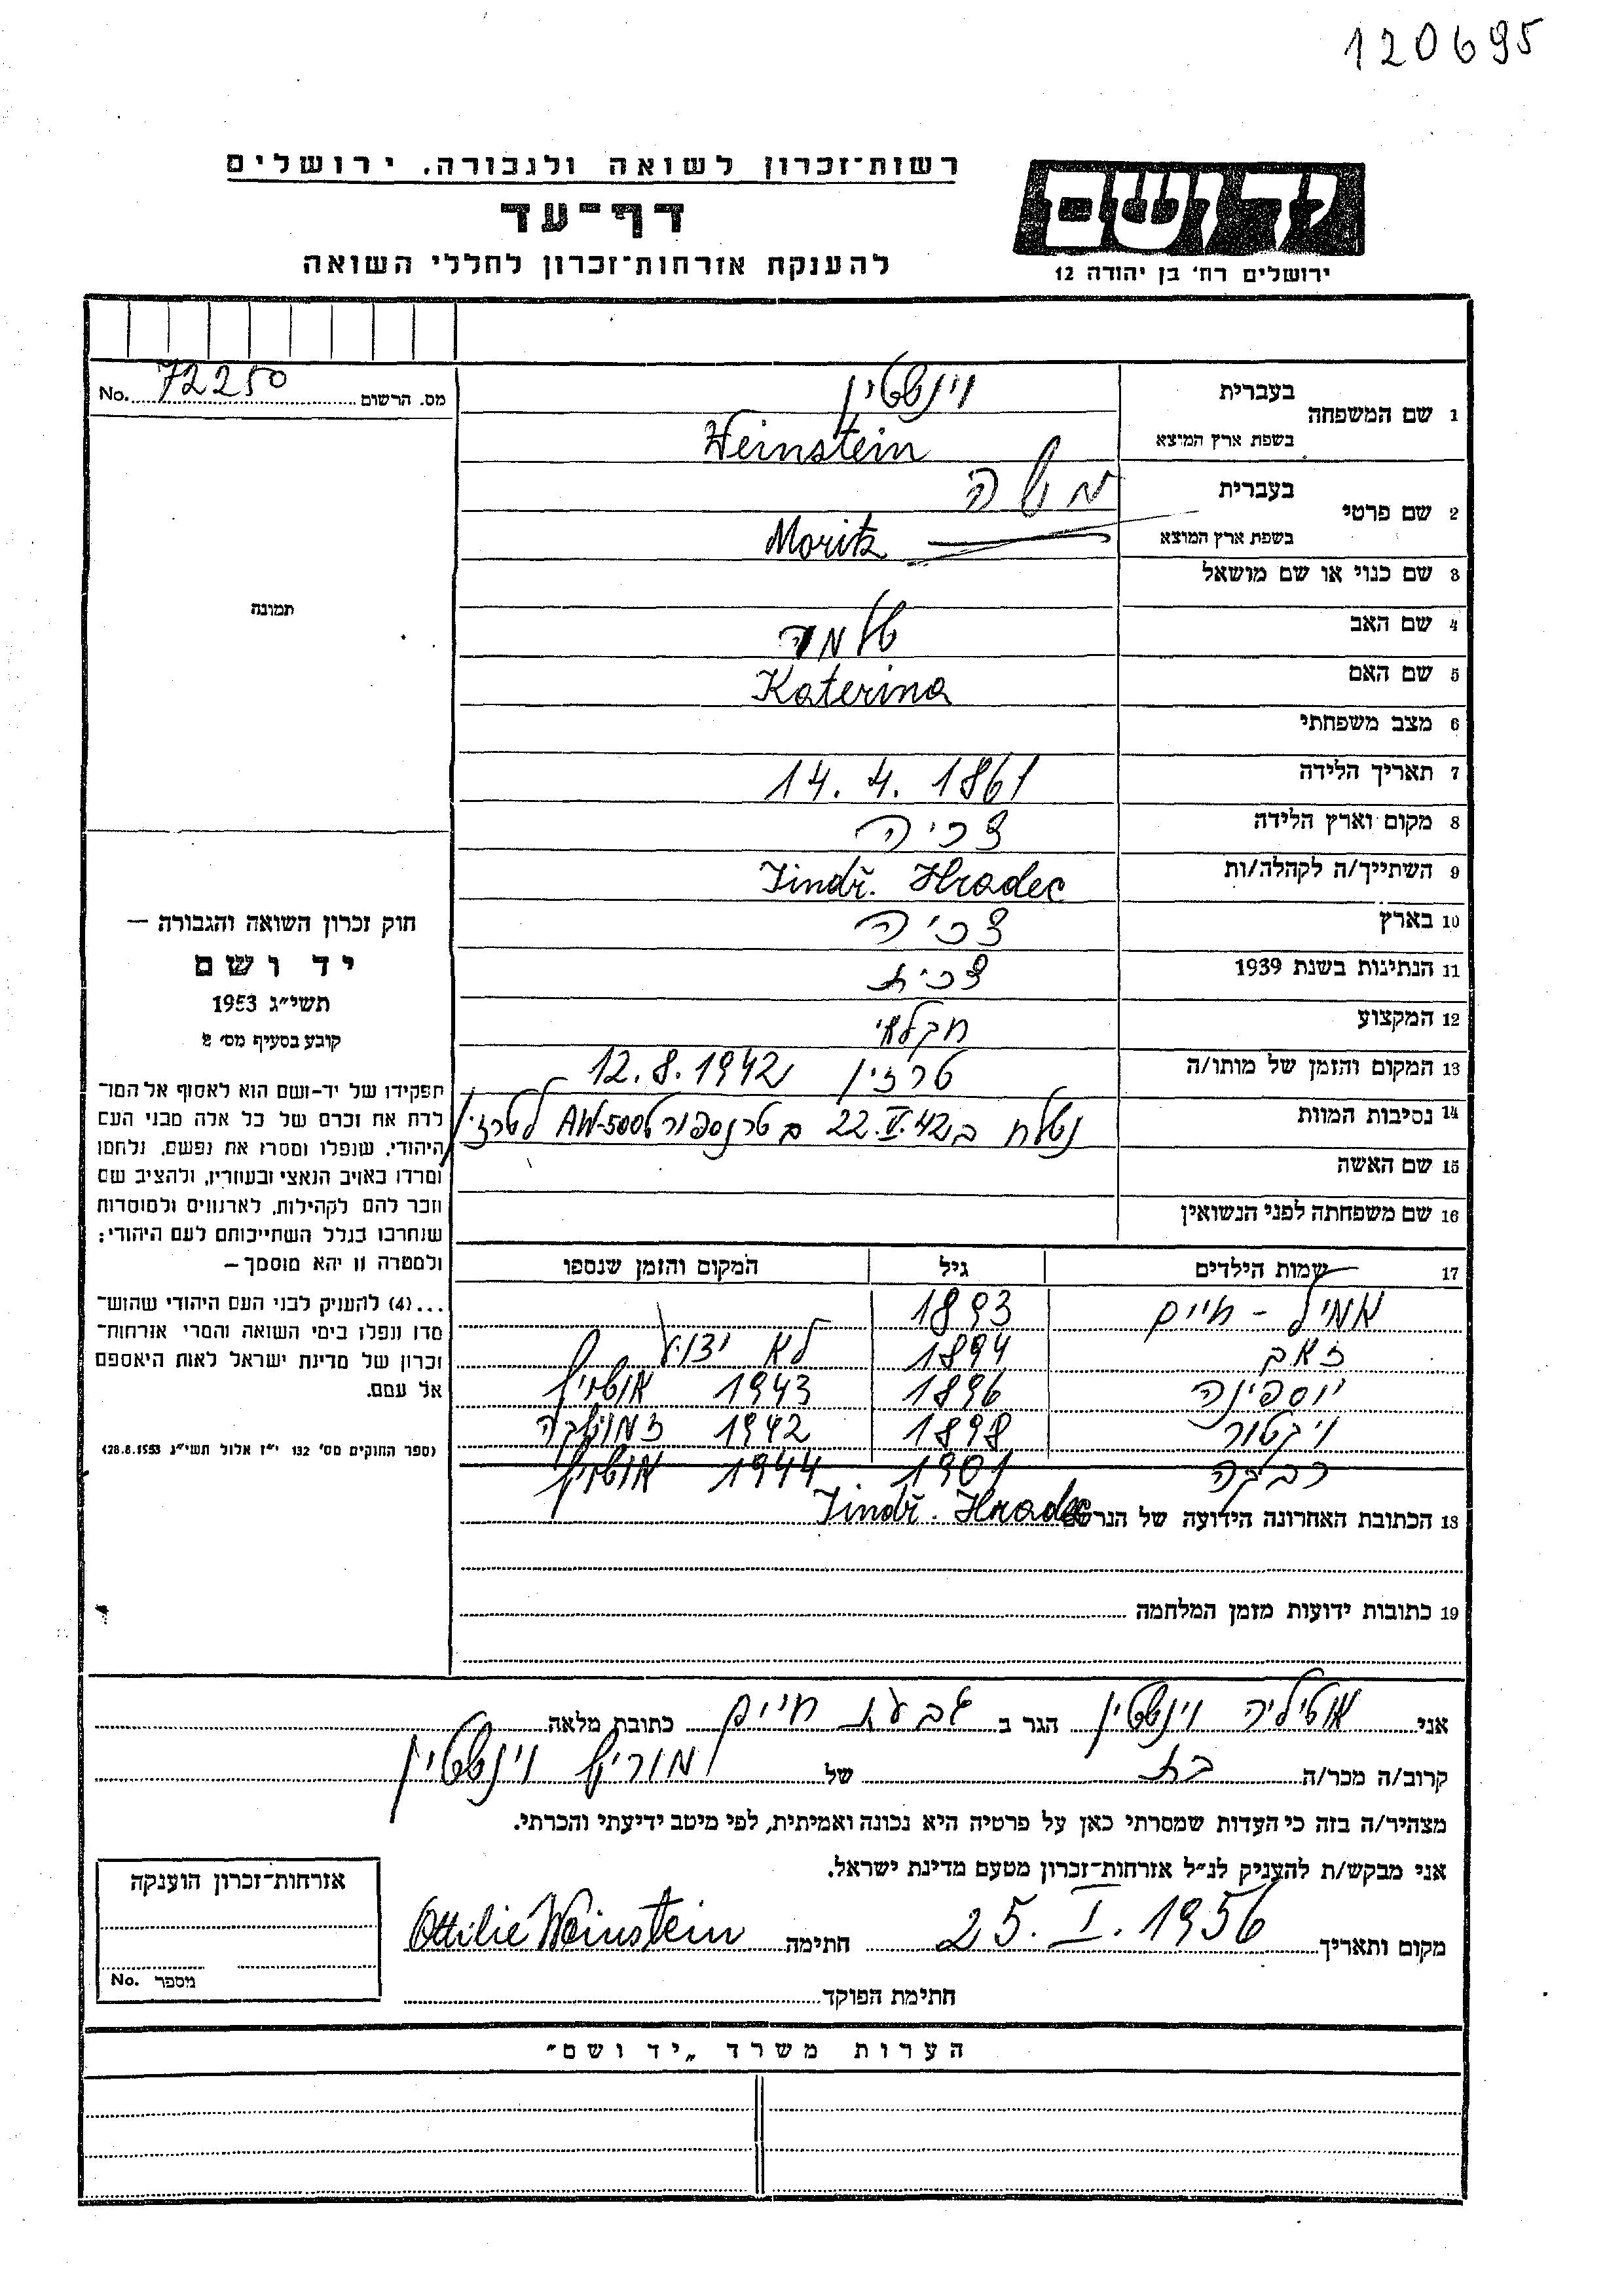 120695
רשות־זכרון לשואה ולגבורה. ירושלים
דף־עד
להענקת אזרחות־זכרון לחללי השואה
יד ושם
ירושלים רח' בן יהודה 12
מס. הרשום 72250 No.
תמונה
חוק זכרון השואה והגבורה —
יד ושם
תשי״ג 1953
קובע בסעיף מס' 2
תפקידו של יד-ושם הוא לאסוף אל המו־
לדת את זכרם של כל אלה מבני העם
היהודי, שנפלו ומסרו את נפשם, נלחמו
ומרדו באויב הנאצי ובעוזריו, ולהציב שם
וזכר להם לקהילות, לארגונים ולמוסדות
שנחרבו בגלל השתייכותם לעם היהודי;
ולמטרה זו יהא מוסמך —
...(4) להעניק לבני העם היהודי שהוש־
מדו ונפלו בימי השואה והמרי אזרחות־
זכרון של מדינת ישראל לאות היאספם
אל עמם.
(ספר החוקים מס' 132 י״ז אלול תשי״ג 28.8.1953)
1 שם המשפחה בעברית וינשטין
בשפת ארץ המוצא Weinstein
2 שם פרטי בעברית משה
בשפת ארץ המוצא Moritz
3 שם כנוי או שם מושאל
4 שם האב שלמה
5 שם האם Katerina
6 מצב משפחתי
7 תאריך הלידה 14. 4. 1861
8 מקום וארץ הלידה צכיה
9 השתייך/ה לקהלה/ות Jindř. Hradec
10 בארץ צכיה
11 הנתינות בשנת 1939 צכית
12 המקצוע חקלאי
13 המקום והזמן של מותו/ה טרזין 12.8.1942
14 נסיבות המוות נשלח ב 22.V.42 בטרנספורט AW-500 לטרזין
15 שם האשה
16 שם משפחתה לפני הנשואין
17 שמות הילדים גיל המקום והזמן שנספו
אמיל - חיים 1893
זאב 1894 לא ידוע
יוספינה 1896 1943 אושויץ
ויקטור 1898 1942
רבקה 1901 1944 אושויץ
18 הכתובת האחרונה הידועה של הנרשם Jindř. Hradec
19 כתובות ידועות מזמן המלחמה
אני אוטיליה וינשטין הגר ב גבעת חיים כתובת מלאה
קרוב/ה מכר/ה בת של מוריץ וינשטין
מצהיר/ה בזה כי העדות שמסרתי כאן על פרטיה היא נכונה ואמיתית, לפי מיטב ידיעתי והכרתי.
אני מבקש/ת להעניק לנ״ל אזרחות־זכרון מטעם מדינת ישראל.
מקום ותאריך 25. I. 1956 חתימה Ottilie Weinstein
חתימת הפוקד
אזרחות־זכרון הוענקה
מספר No.
הערות משרד „יד ושם״